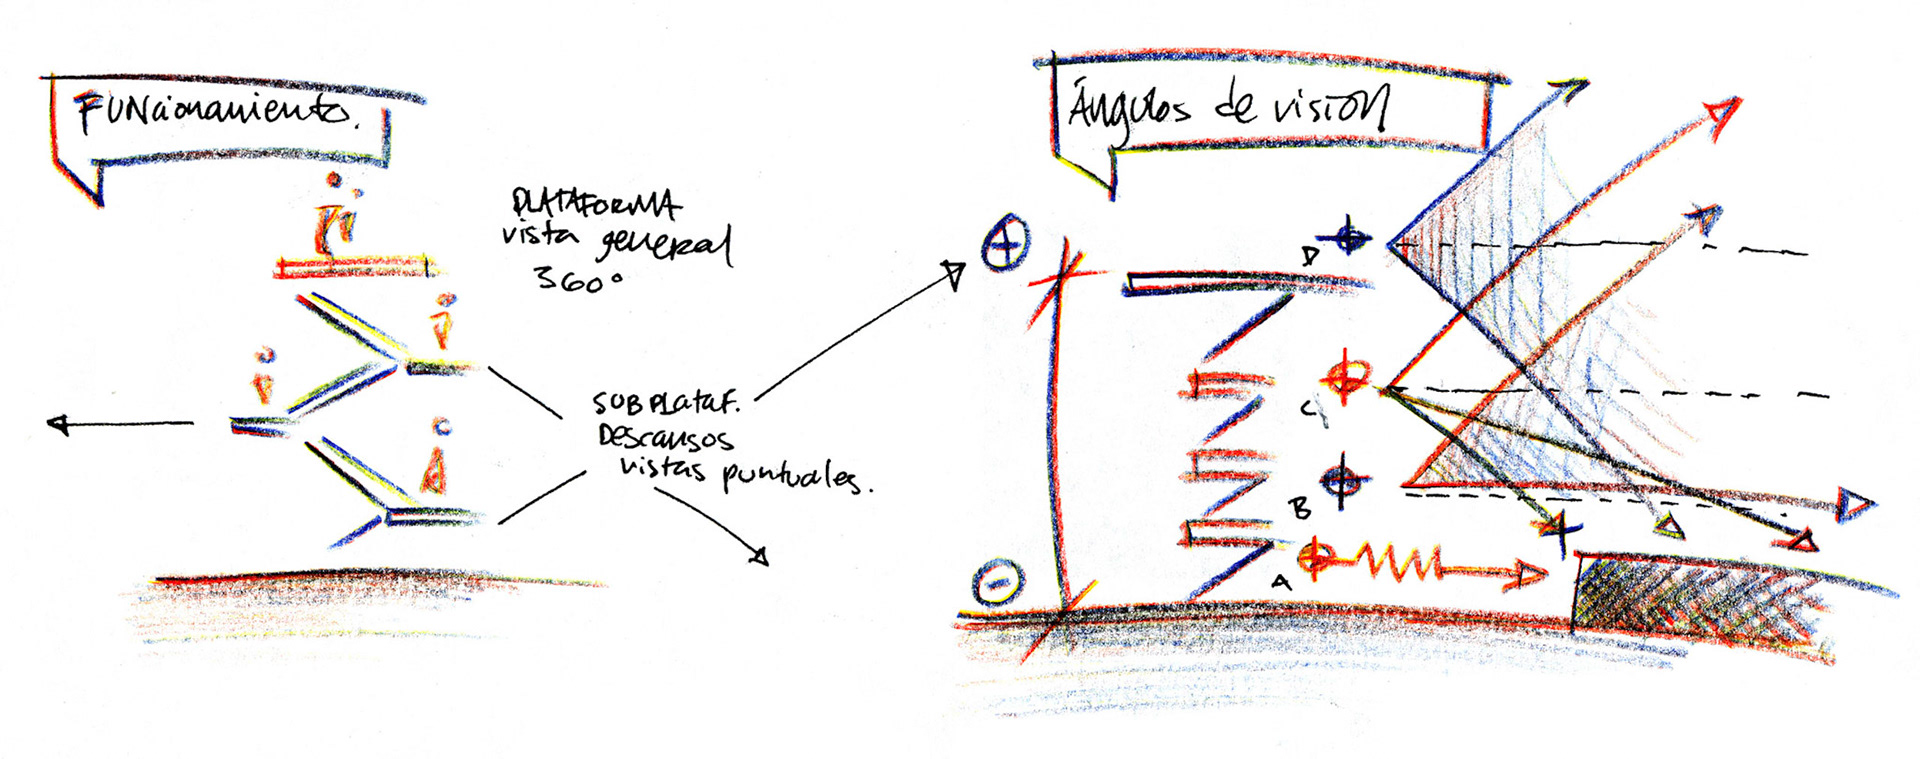 FUNcionamiento.
PLATAFORMA
vista general
360°
SUBPLATAF.
Descansos
vistas puntuales.
Ángulos de visión
+
D
C
B
A
-